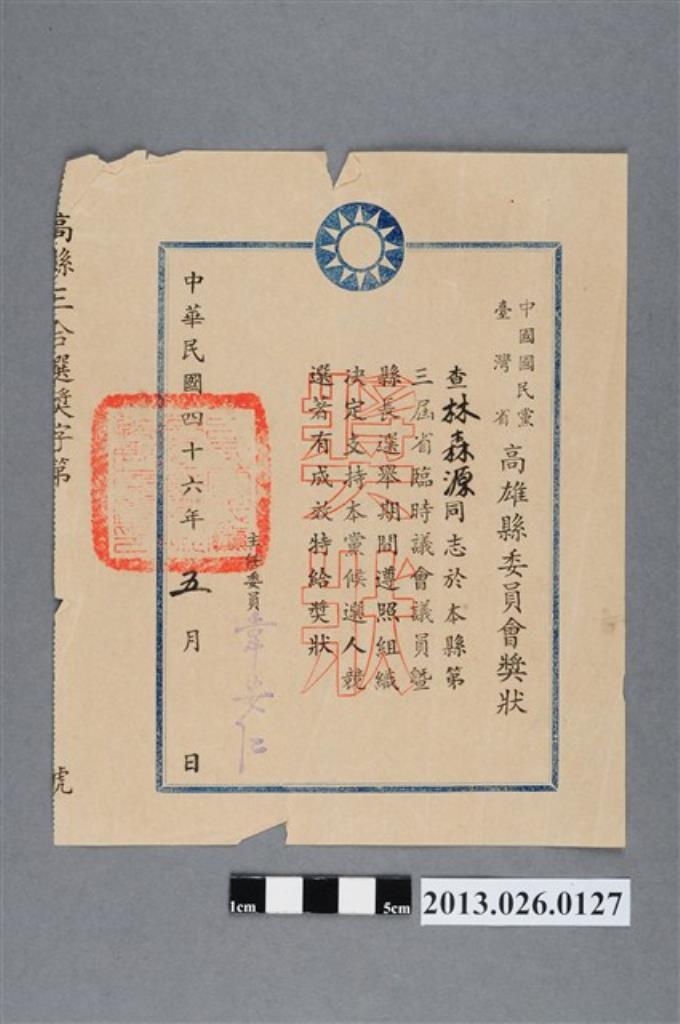 中國國民黨
臺灣省
高雄縣委員會獎狀
查林森源同志於本縣第
三屆省臨時議會議員暨
縣長選舉期間遵照組織
決定支持本黨候選人競
選著有成效特給獎狀
獎狀
主任委員
中華民國四十六年五月 日
高縣三合選獎字第 號
1cm 5cm
2013.026.0127